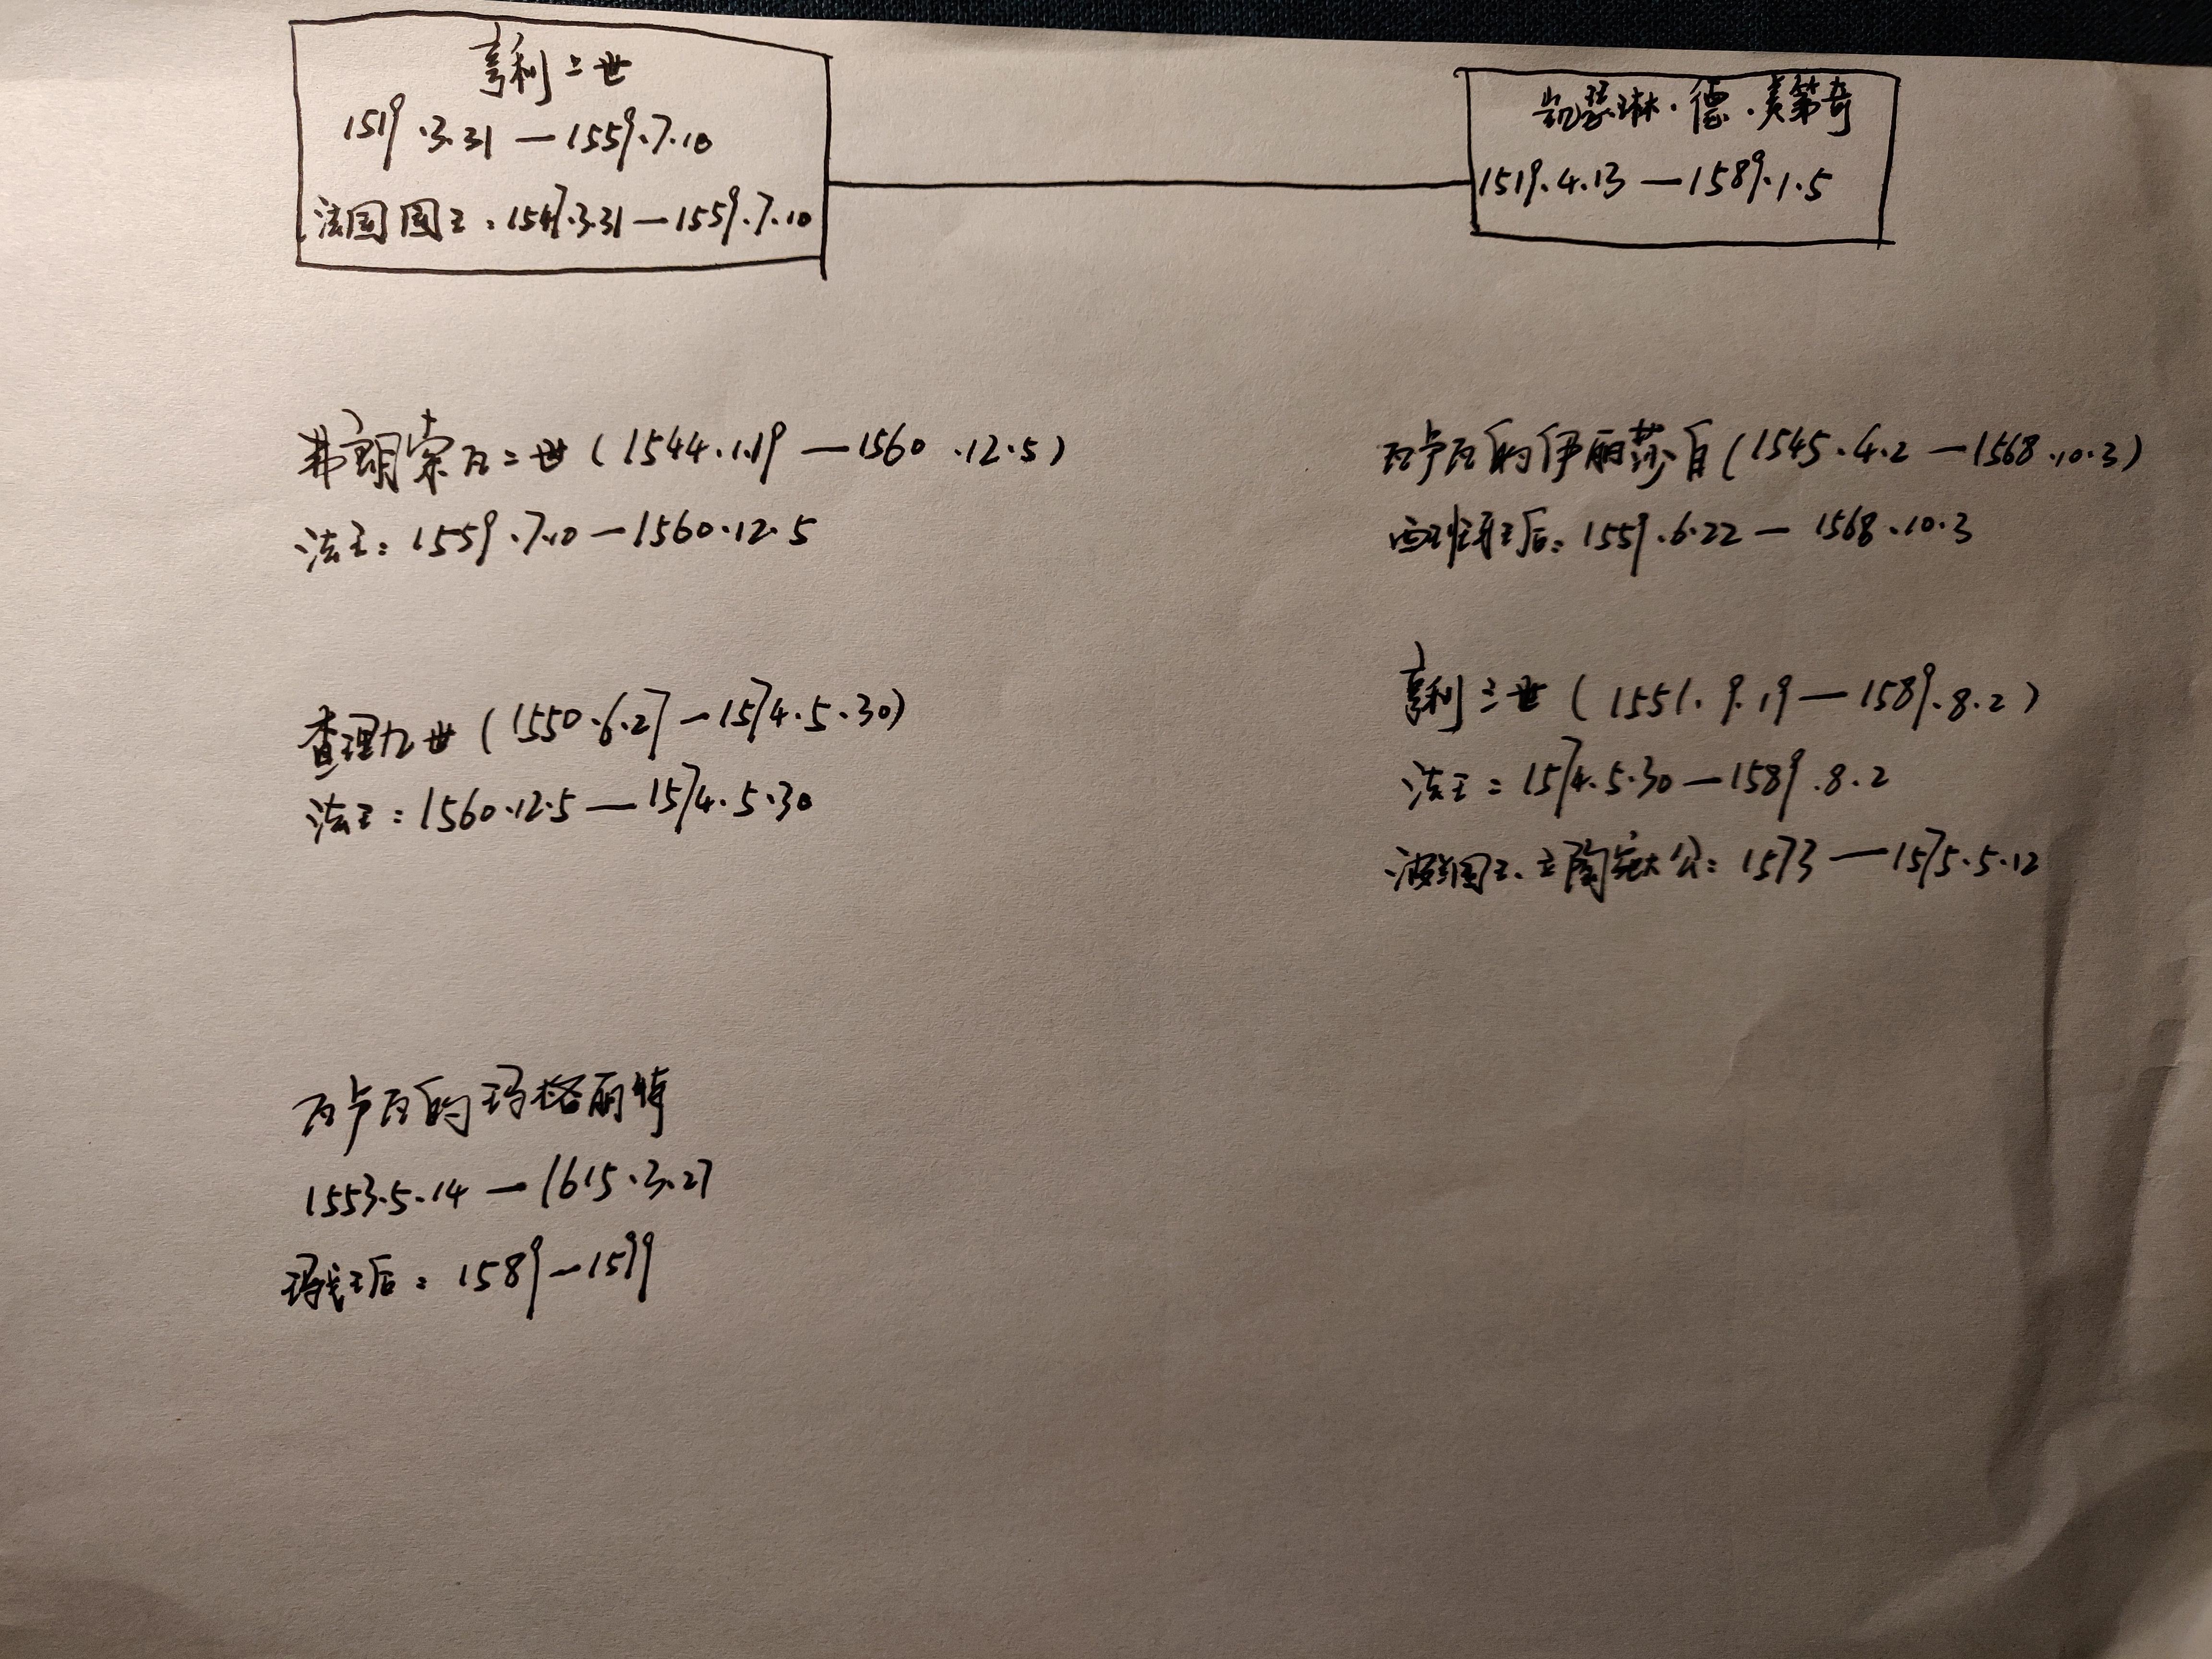 亨利二世
1519.3.31—1559.7.10
法国国王：1547.3.31—1559.7.10
凯瑟琳·德·美第奇
1519.4.13—1589.1.5
弗朗索瓦二世（1544.1.19—1560.12.5）
法王：1559.7.10—1560.12.5
瓦卢瓦的伊丽莎白（1545.4.2—1568.10.3）
西班牙王后：1559.6.22—1568.10.3
查理九世（1550.6.27—1574.5.30）
法王：1560.12.5—1574.5.30
亨利三世（1551.9.19—1589.8.2）
法王：1574.5.30—1589.8.2
波兰国王、立陶宛大公：1573—1575.5.12
瓦卢瓦的玛格丽特
1553.5.14—1615.3.27
王后：1589—1599